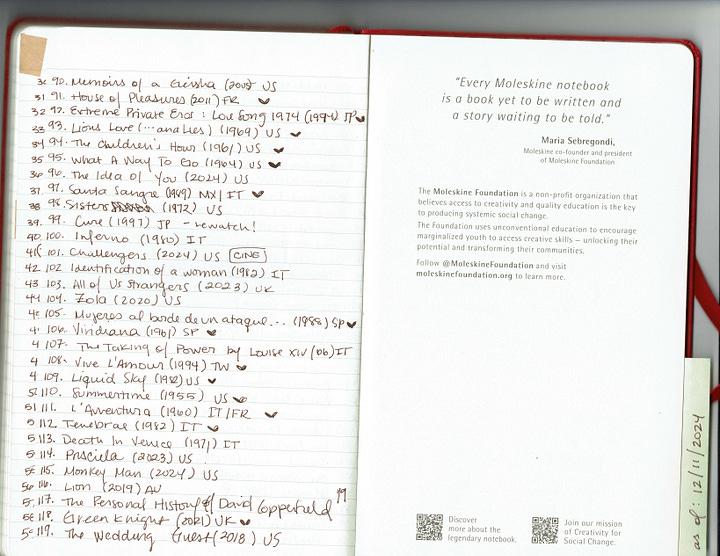 30 90. Memoirs of a Geisha (2005) US
31 91. House of Pleasures (2011) FR
32 92. Extreme Private Eros: Love Song 1974 (1974) JP
33 93. Lions Love (...and Lies) (1969) US
34 94. The Children's Hour (1961) US
35 95. What A Way To Go (1964) US
36 96. The Idea of You (2024) US
37 97. Santa Sangre (1989) MX/IT
38 98. Sisters (1972) US
39. 99. Cure (1997) JP - rewatch!
40. 100. Inferno (1980) IT
41 101. Challengers (2024) US CINE
42. 102 Identification of a woman (1982) IT
43 103. All of Us Strangers (2023) UK
44 104. Zola (2020) US
105. Mujeres al borde de un ataque... (1988) SP
106. Viridiana (1961) SP
4 107. The Taking of Power by Louise XIV (66) IT
4 108. Vive L'Amour (1994) TW
4 109. Liquid Sky (1982) US
110. Summertime (1955) US
51 111. L'Avventura (1960) IT/FR
5 112. Tenebrae (1982) IT
5 113. Death In Venice (1971) IT
5 114. Priscilla (2023) US
115. Monkey Man (2024) US
116. Lion (2019) AU
117. The Personal History of David Copperfield 19
118. Green Knight (2021) UK
119. The Wedding Guest (2018) US
"Every Moleskine notebook
is a book yet to be written and
a story waiting to be told."
Maria Sebregondi,
Moleskine co-founder and president
of Moleskine Foundation
The Moleskine Foundation is a non-profit organization that
believes access to creativity and quality education is the key
to producing systemic social change.
The Foundation uses unconventional education to encourage
marginalized youth to access creative skills – unlocking their
potential and transforming their communities.
Follow @MoleskineFoundation and visit
moleskinefoundation.org to learn more.
Discover
more about the
legendary notebook.
Join our mission
of Creativity for
Social Change.
as of: 12/11/2024